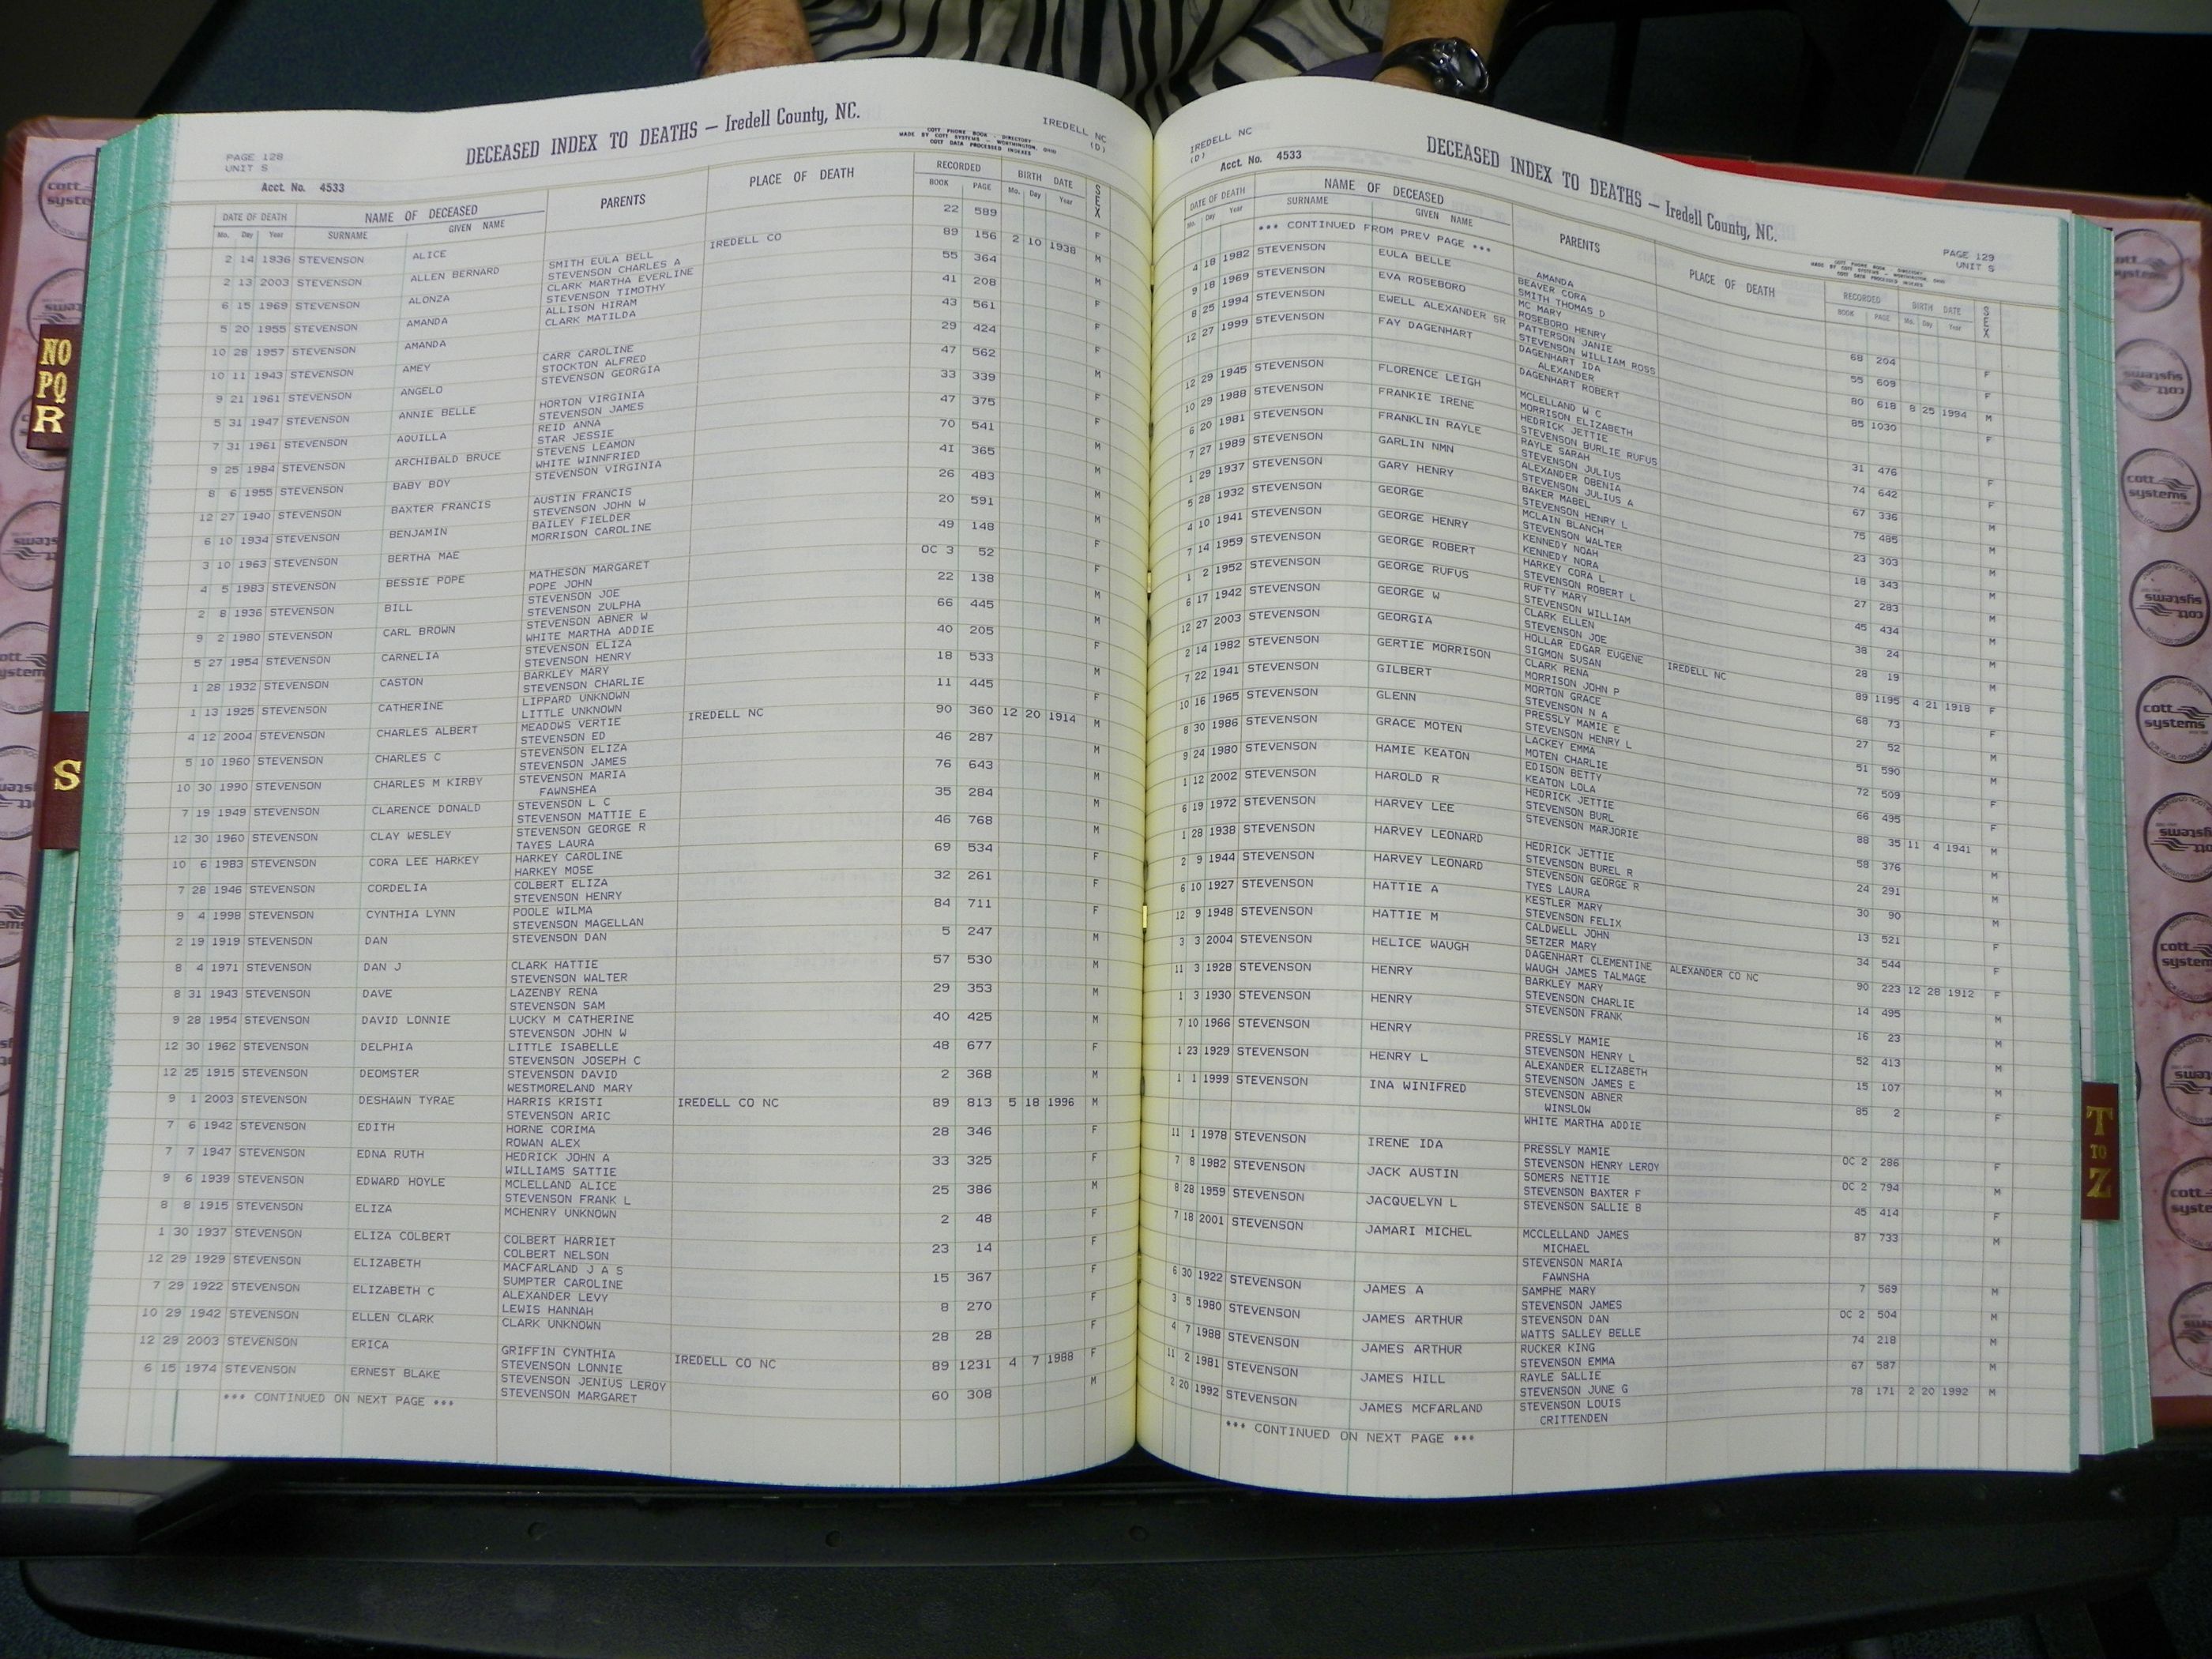 DECEASED INDEX TO DEATHS — Iredell County, NC.
PAGE 128
UNIT S
Acct. No. 4533
COTT PHONE BOOK - DIRECTORY
MADE BY COTT SYSTEMS - WORTHINGTON, OHIO
COTT DATA PROCESSED INDEXES
IREDELL NC
(D)
DATE OF DEATH NAME OF DECEASED PARENTS PLACE OF DEATH RECORDED BIRTH DATE SEX
Mo. Day Year SURNAME GIVEN NAME BOOK PAGE Mo. Day Year
2 14 1936 STEVENSON ALICE 22 589 F
2 13 2003 STEVENSON ALLEN BERNARD SMITH EULA BELL IREDELL CO 89 156 2 10 1938 M
STEVENSON CHARLES A
6 15 1969 STEVENSON ALONZA CLARK MARTHA EVERLINE 55 364 M
STEVENSON TIMOTHY
5 20 1955 STEVENSON AMANDA ALLISON HIRAM 41 208 F
CLARK MATILDA
10 28 1957 STEVENSON AMANDA 43 561 F
10 11 1943 STEVENSON AMEY CARR CAROLINE 29 424 F
STOCKTON ALFRED
9 21 1961 STEVENSON ANGELO STEVENSON GEORGIA 47 562 M
5 31 1947 STEVENSON ANNIE BELLE HORTON VIRGINIA 33 339 F
STEVENSON JAMES
7 31 1961 STEVENSON AQUILLA REID ANNA 47 375 F
STAR JESSIE
9 25 1984 STEVENSON ARCHIBALD BRUCE STEVENS LEAMON 70 541 M
WHITE WINNFRIED
8 6 1955 STEVENSON BABY BOY STEVENSON VIRGINIA 41 365 M
12 27 1940 STEVENSON BAXTER FRANCIS AUSTIN FRANCIS 26 483 M
STEVENSON JOHN W
6 10 1934 STEVENSON BENJAMIN BAILEY FIELDER 20 591 M
MORRISON CAROLINE
3 10 1963 STEVENSON BERTHA MAE 49 148 F
4 5 1983 STEVENSON BESSIE POPE MATHESON MARGARET OC 3 52 F
POPE JOHN
2 8 1936 STEVENSON BILL STEVENSON JOE 22 138 M
STEVENSON ZULPHA
9 2 1980 STEVENSON CARL BROWN STEVENSON ABNER W 66 445 M
WHITE MARTHA ADDIE
5 27 1954 STEVENSON CARNELIA STEVENSON ELIZA 40 205 F
STEVENSON HENRY
1 28 1932 STEVENSON CASTON BARKLEY MARY 18 533 M
STEVENSON CHARLIE
1 13 1925 STEVENSON CATHERINE LIPPARD UNKNOWN 11 445 F
LITTLE UNKNOWN
4 12 2004 STEVENSON CHARLES ALBERT MEADOWS VERTIE IREDELL NC 90 360 12 20 1914 M
STEVENSON ED
5 10 1960 STEVENSON CHARLES C STEVENSON ELIZA 46 287 M
STEVENSON JAMES
10 30 1990 STEVENSON CHARLES M KIRBY STEVENSON MARIA 76 643 M
FAWNSHEA
7 19 1949 STEVENSON CLARENCE DONALD STEVENSON L C 35 284 M
STEVENSON MATTIE E
12 30 1960 STEVENSON CLAY WESLEY STEVENSON GEORGE R 46 768 M
TAYES LAURA
10 6 1983 STEVENSON CORA LEE HARKEY HARKEY CAROLINE 69 534 F
HARKEY MOSE
7 28 1946 STEVENSON CORDELIA COLBERT ELIZA 32 261 F
STEVENSON HENRY
9 4 1998 STEVENSON CYNTHIA LYNN POOLE WILMA 84 711 F
STEVENSON MAGELLAN
2 19 1919 STEVENSON DAN STEVENSON DAN 5 247 M
8 4 1971 STEVENSON DAN J CLARK HATTIE 57 530 M
STEVENSON WALTER
8 31 1943 STEVENSON DAVE LAZENBY RENA 29 353 M
STEVENSON SAM
9 28 1954 STEVENSON DAVID LONNIE LUCKY M CATHERINE 40 425 M
STEVENSON JOHN W
12 30 1962 STEVENSON DELPHIA LITTLE ISABELLE 48 677 F
STEVENSON JOSEPH C
12 25 1915 STEVENSON DEOMSTER STEVENSON DAVID 2 368 M
WESTMORELAND MARY
9 1 2003 STEVENSON DESHAWN TYRAE HARRIS KRISTI IREDELL CO NC 89 813 5 18 1996 M
STEVENSON ARIC
7 6 1942 STEVENSON EDITH HORNE CORIMA 28 346 F
ROWAN ALEX
7 7 1947 STEVENSON EDNA RUTH HEDRICK JOHN A 33 325 F
WILLIAMS SATTIE
9 6 1939 STEVENSON EDWARD HOYLE MCLELLAND ALICE 25 386 M
STEVENSON FRANK L
8 8 1915 STEVENSON ELIZA MCHENRY UNKNOWN 2 48 F
1 30 1937 STEVENSON ELIZA COLBERT COLBERT HARRIET 23 14 F
COLBERT NELSON
12 29 1929 STEVENSON ELIZABETH MACFARLAND J A S 15 367 F
SUMPTER CAROLINE
7 29 1922 STEVENSON ELIZABETH C ALEXANDER LEVY 8 270 F
LEWIS HANNAH
10 29 1942 STEVENSON ELLEN CLARK CLARK UNKNOWN 28 28 F
12 29 2003 STEVENSON ERICA GRIFFIN CYNTHIA IREDELL CO NC 89 1231 4 7 1988 F
STEVENSON LONNIE
6 15 1974 STEVENSON ERNEST BLAKE STEVENSON JENIUS LEROY 60 308 M
STEVENSON MARGARET
*** CONTINUED ON NEXT PAGE ***
IREDELL NC
(D)
Acct. No. 4533
DECEASED INDEX TO DEATHS — Iredell County, NC.
PAGE 129
UNIT S
DATE OF DEATH NAME OF DECEASED PARENTS PLACE OF DEATH RECORDED BIRTH DATE SEX
Mo. Day Year SURNAME GIVEN NAME BOOK PAGE Mo. Day Year
*** CONTINUED FROM PREV PAGE ***
4 18 1982 STEVENSON EULA BELLE AMANDA 68 204 F
BEAVER CORA
SMITH THOMAS D
9 18 1969 STEVENSON EVA ROSEBORO MC MARY 55 609 F
ROSEBORO HENRY
8 25 1994 STEVENSON EWELL ALEXANDER SR PATTERSON JANIE 80 618 8 25 1994 M
STEVENSON WILLIAM ROSS
12 27 1999 STEVENSON FAY DAGENHART DAGENHART IDA 85 1030 F
ALEXANDER
DAGENHART ROBERT
12 29 1945 STEVENSON FLORENCE LEIGH MCLELLAND W C 31 476 F
MORRISON ELIZABETH
10 29 1988 STEVENSON FRANKIE IRENE HEDRICK JETTIE 74 642
STEVENSON BURLIE RUFUS
6 20 1981 STEVENSON FRANKLIN RAYLE RAYLE SARAH 67 336 M
STEVENSON JULIUS
7 27 1989 STEVENSON GARLIN NMN ALEXANDER OBENIA 75 485 M
STEVENSON JULIUS A
1 29 1937 STEVENSON GARY HENRY BAKER MABEL 23 303 M
STEVENSON HENRY L
5 28 1932 STEVENSON GEORGE MCLAIN BLANCH 18 343 M
STEVENSON WALTER
4 10 1941 STEVENSON GEORGE HENRY KENNEDY NOAH 27 283 M
KENNEDY NORA
7 14 1959 STEVENSON GEORGE ROBERT HARKEY CORA L 45 434 M
STEVENSON ROBERT L
1 2 1952 STEVENSON GEORGE RUFUS RUFTY MARY 38 24 M
STEVENSON WILLIAM
6 17 1942 STEVENSON GEORGE W CLARK ELLEN 28 19 M
STEVENSON JOE
12 27 2003 STEVENSON GEORGIA HOLLAR EDGAR EUGENE IREDELL NC 89 1195 4 21 1918 F
SIGMON SUSAN
2 14 1982 STEVENSON GERTIE MORRISON CLARK RENA 68 73 F
MORRISON JOHN P
7 22 1941 STEVENSON GILBERT MORTON GRACE 27 52 M
STEVENSON N A
10 16 1965 STEVENSON GLENN PRESSLY MAMIE E 51 590 M
STEVENSON HENRY L
8 30 1986 STEVENSON GRACE MOTEN LACKEY EMMA 72 509 F
MOTEN CHARLIE
9 24 1980 STEVENSON HAMIE KEATON EDISON BETTY 66 495 F
KEATON LOLA
1 12 2002 STEVENSON HAROLD R HEDRICK JETTIE 88 35 11 4 1941 M
STEVENSON BURL
6 19 1972 STEVENSON HARVEY LEE STEVENSON MARJORIE 58 376 M
1 28 1938 STEVENSON HARVEY LEONARD HEDRICK JETTIE 24 291 M
STEVENSON BUREL R
2 9 1944 STEVENSON HARVEY LEONARD STEVENSON GEORGE R 30 90 M
TYES LAURA
6 10 1927 STEVENSON HATTIE A KESTLER MARY 13 521 F
STEVENSON FELIX
12 9 1948 STEVENSON HATTIE M CALDWELL JOHN 34 544 F
SETZER MARY
3 3 2004 STEVENSON HELICE WAUGH DAGENHART CLEMENTINE ALEXANDER CO NC 90 223 12 28 1912 F
WAUGH JAMES TALMAGE
11 3 1928 STEVENSON HENRY BARKLEY MARY 14 495 M
STEVENSON CHARLIE
1 3 1930 STEVENSON HENRY STEVENSON FRANK 16 23 M
7 10 1966 STEVENSON HENRY PRESSLY MAMIE 52 413 M
STEVENSON HENRY L
1 23 1929 STEVENSON HENRY L ALEXANDER ELIZABETH 15 107 M
STEVENSON JAMES E
1 1 1999 STEVENSON INA WINIFRED STEVENSON ABNER 85 2 F
WINSLOW
WHITE MARTHA ADDIE
11 1 1978 STEVENSON IRENE IDA PRESSLY MAMIE OC 2 286 F
STEVENSON HENRY LEROY
7 8 1982 STEVENSON JACK AUSTIN SOMERS NETTIE OC 2 794 M
STEVENSON BAXTER F
8 28 1959 STEVENSON JACQUELYN L STEVENSON SALLIE B 45 414 F
7 18 2001 STEVENSON JAMARI MICHEL MCCLELLAND JAMES 87 733 M
MICHAEL
STEVENSON MARIA
FAWNSHA
6 30 1922 STEVENSON JAMES A SAMPHE MARY 7 569 M
STEVENSON JAMES
3 5 1980 STEVENSON JAMES ARTHUR STEVENSON DAN OC 2 504 M
WATTS SALLEY BELLE
4 7 1988 STEVENSON JAMES ARTHUR RUCKER KING 74 218 M
STEVENSON EMMA
11 2 1981 STEVENSON JAMES HILL RAYLE SALLIE 67 587 M
STEVENSON JUNE G
2 20 1992 STEVENSON JAMES MCFARLAND STEVENSON LOUIS 78 171 2 20 1992 M
CRITTENDEN
*** CONTINUED ON NEXT PAGE ***
NO
PQ
R
S
T
TO
Z
cott
systems